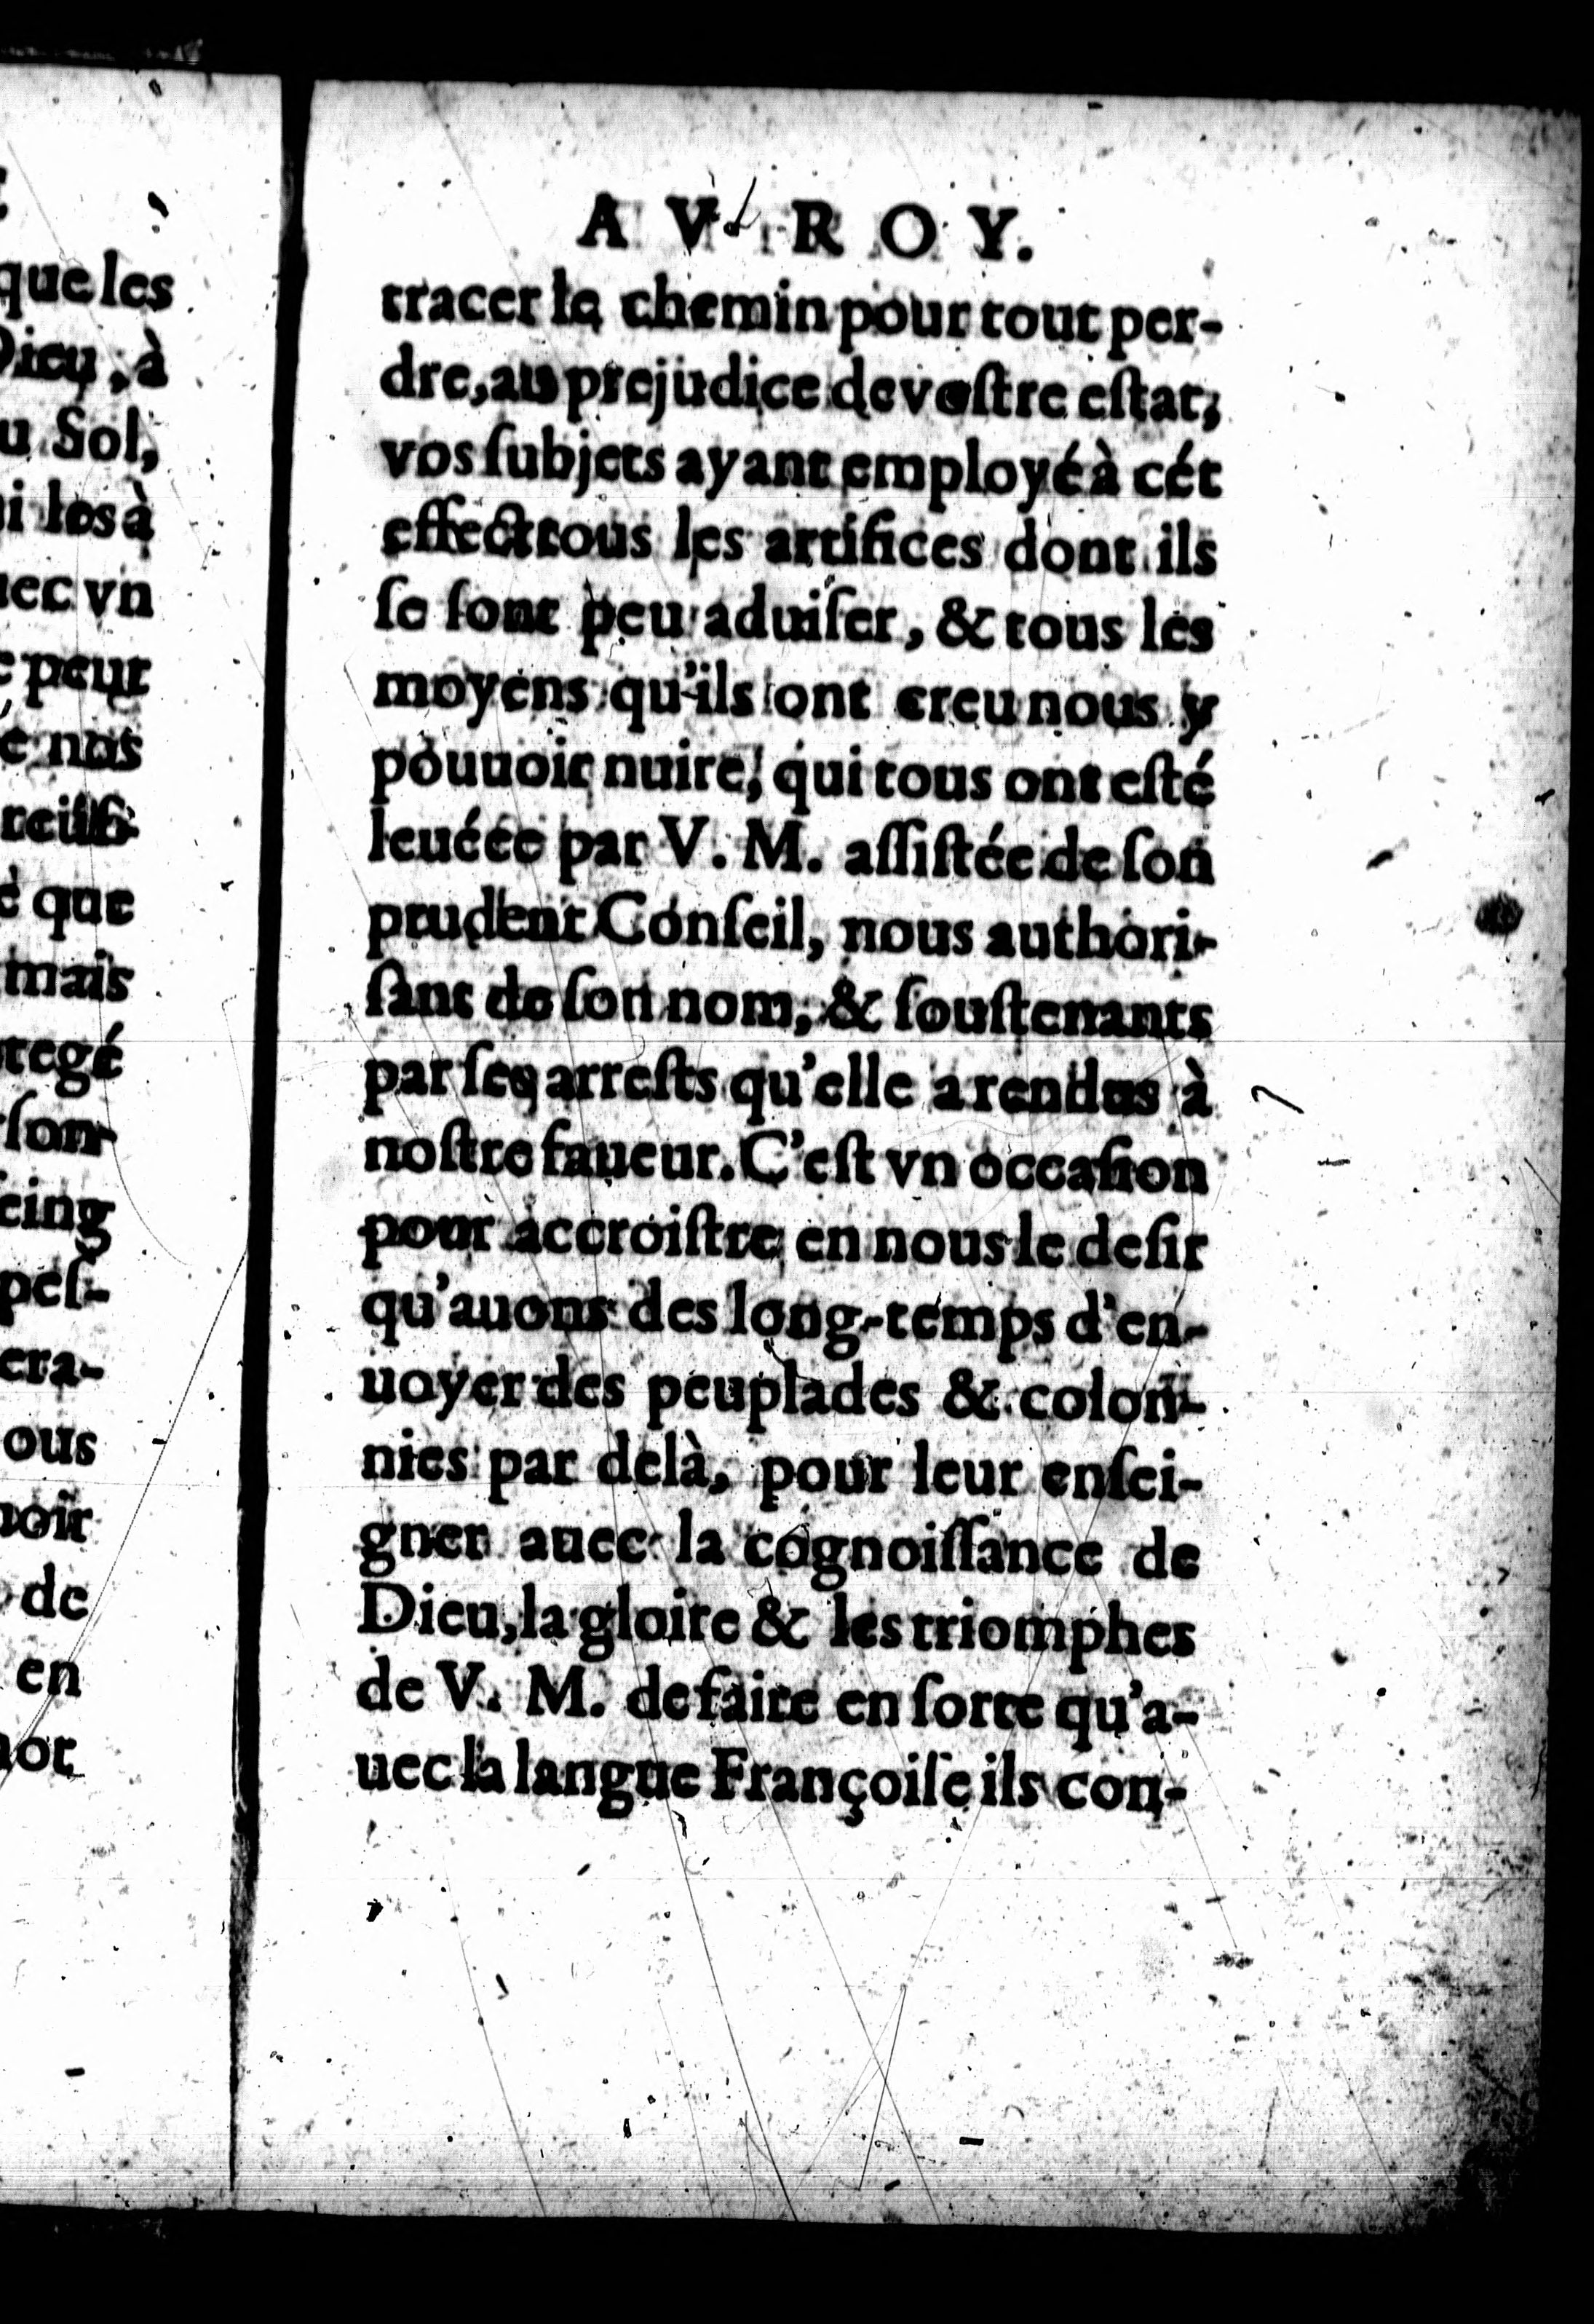 que les
Dieu, à
u Sol,
uec vn
peut
e nos
que
mais
tegé
ſon
ſeing
peſ-
era-
ous
uoir
de
en
A V R O Y.
tracer le chemin pour tout per-
dre, au prejudice de voſtre eſtat;
vos ſubjets ayant employé à cét
effect tous les artifices dont ils
ſe ſont peu aduiſer, & tous les
moyens qu'ils ont creu nous y
pouuoir nuire, qui tous ont eſté
leuéee par V. M. aſſiſtée de ſon
prudent Conſeil, nous authori-
ſant de ſon nom, & ſouſtenants
par ſes arreſts qu'elle a rendus à
noſtre faueur. C'eſt vn occaſion
pour accroiſtre en nous le deſir
qu'auons des long-temps d'en-
uoyer des peuplades & colon-
nies par delà, pour leur enſei-
gner auec la cognoiſſance de
Dieu, la gloire & les triomphes
de V. M. de faire en ſorte qu'a-
uec la langue Françoiſe ils con-